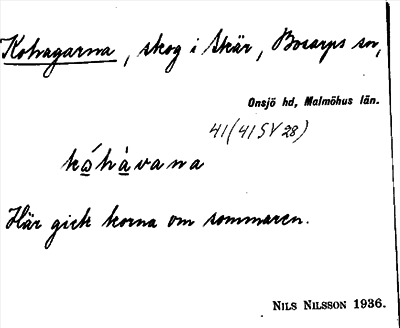 Kohagarna, skog i Skär, Bosarps sn,
Onsjö hd, Malmöhus län.
41(41SV28)
kǻhåvana
Här gick korna om sommaren.
NILS NILSSON 1936.